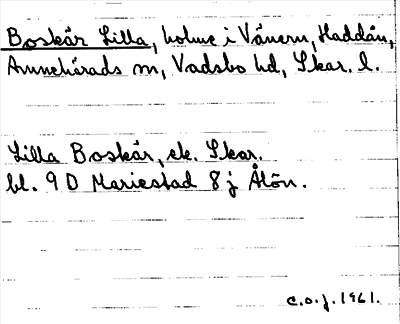 Boskär Lilla, holme i Vänern, Haddån,
Annehärads sn, Vadsbo hd, Skar. l.
Lilla Boskär, ek. Skar.
bl. 9 D Mariestad 8 j Ålön.
c.o.j. 1961.